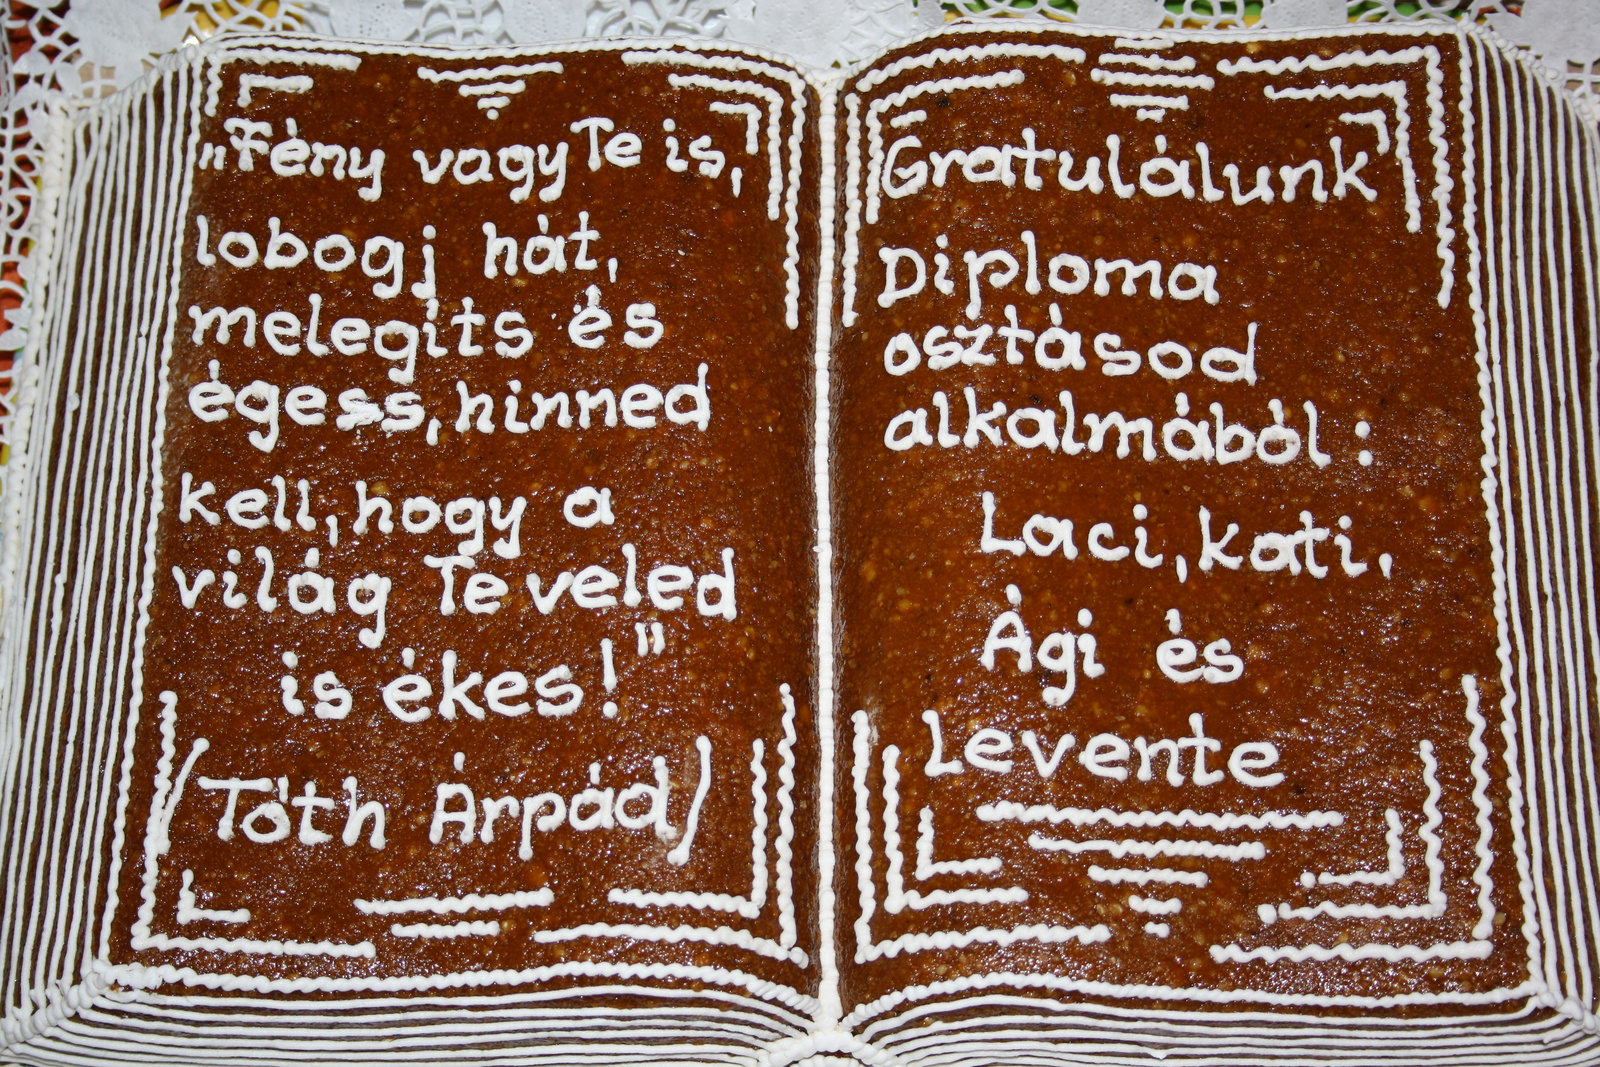 „Fény vagy Te is,
lobogj hát,
melegíts és
égess, hinned
kell, hogy a
világ Te veled
is ékes!"
(Tóth Árpád)
Gratulálunk
Diploma
osztásod
alkalmából:
Laci, kati,
Ági és
Levente